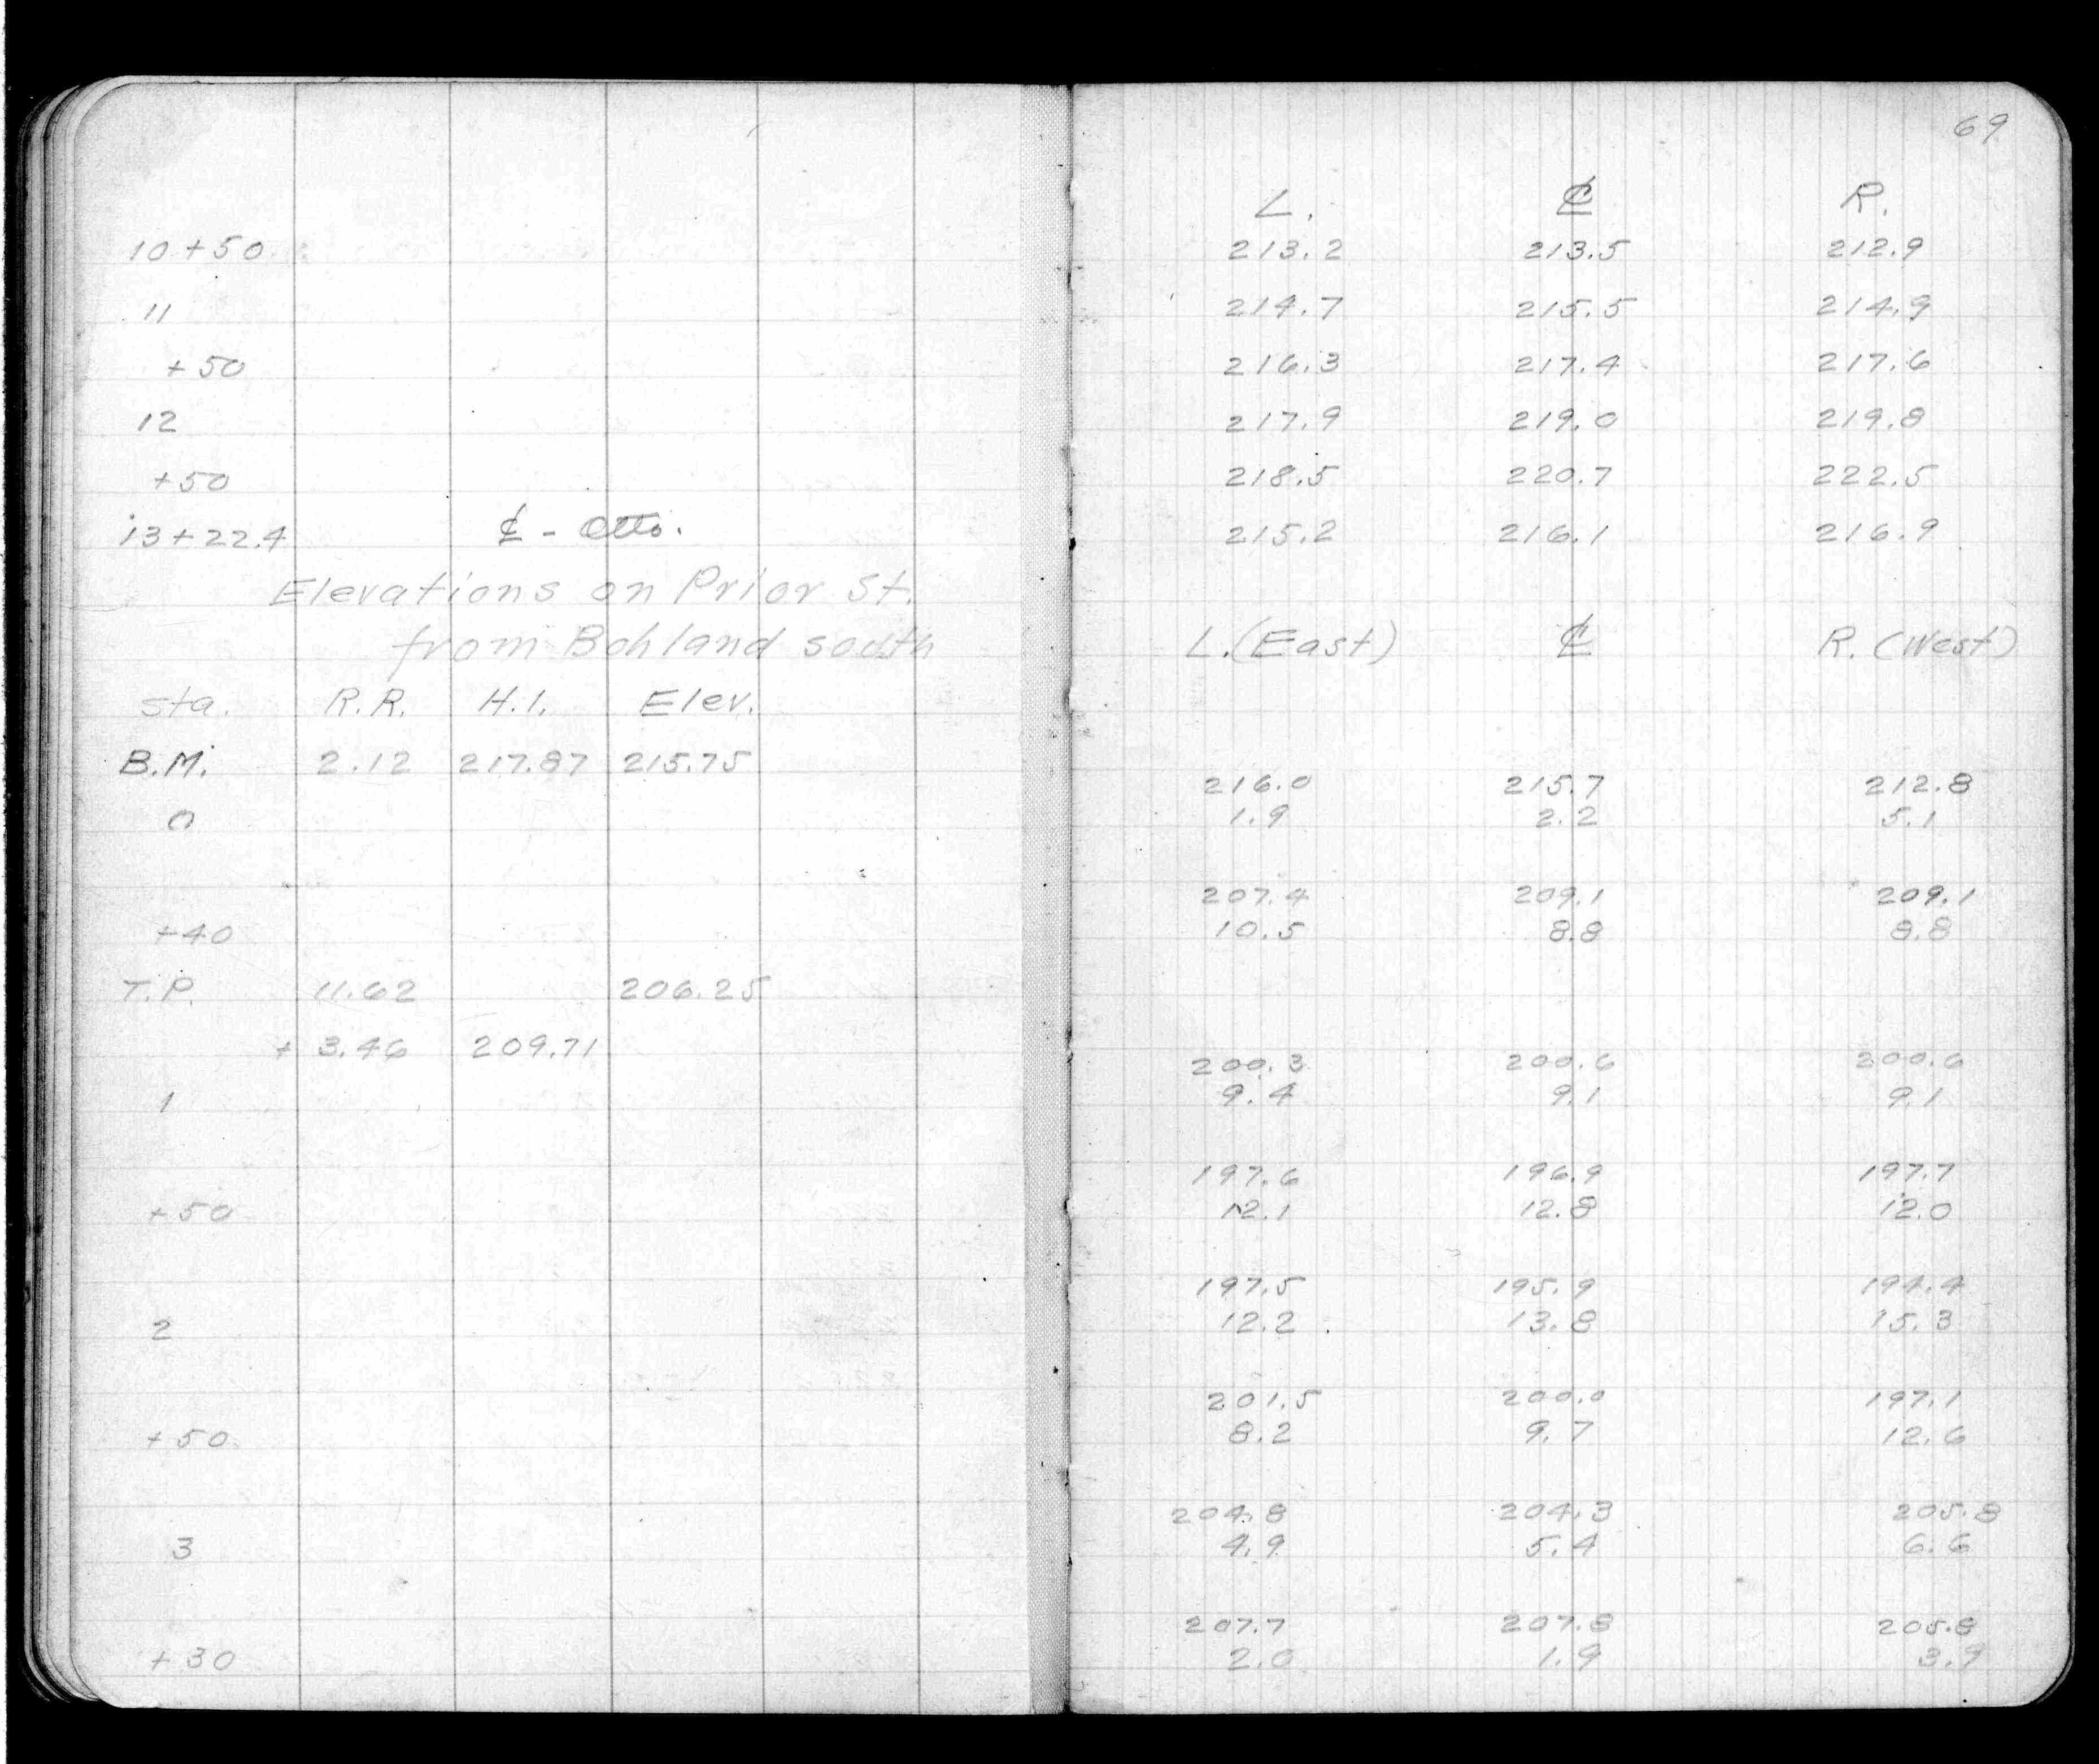 69
L. ℄ R.
10+50 213.2 213.5 212.9
11 214.7 215.5 214.9
+50 216.3 217.4 217.6
12 217.9 219.0 219.8
+50 218.5 220.7 222.5
13+22.4 ℄ - Otto. 215.2 216.1 216.9
Elevations on Prior St.
from Bohland south L.(East) ℄ R.(West)
Sta. R.R. H.I. Elev.
B.M. 2.12 217.87 215.75
216.0 215.7 212.8
0 1.9 2.2 5.1
207.4 209.1 209.1
+40 10.5 8.8 8.8
T.P. 11.62 206.25
+ 3.46 209.71
200.3 200.6 200.6
1 9.4 9.1 9.1
197.6 196.9 197.7
+50 12.1 12.8 12.0
197.5 195.9 194.4
2 12.2 13.8 15.3
201.5 200.0 197.1
+50 8.2 9.7 12.6
204.8 204.3 205.8
3 4.9 5.4 6.6
207.7 207.8 205.8
+30 2.0 1.9 3.9